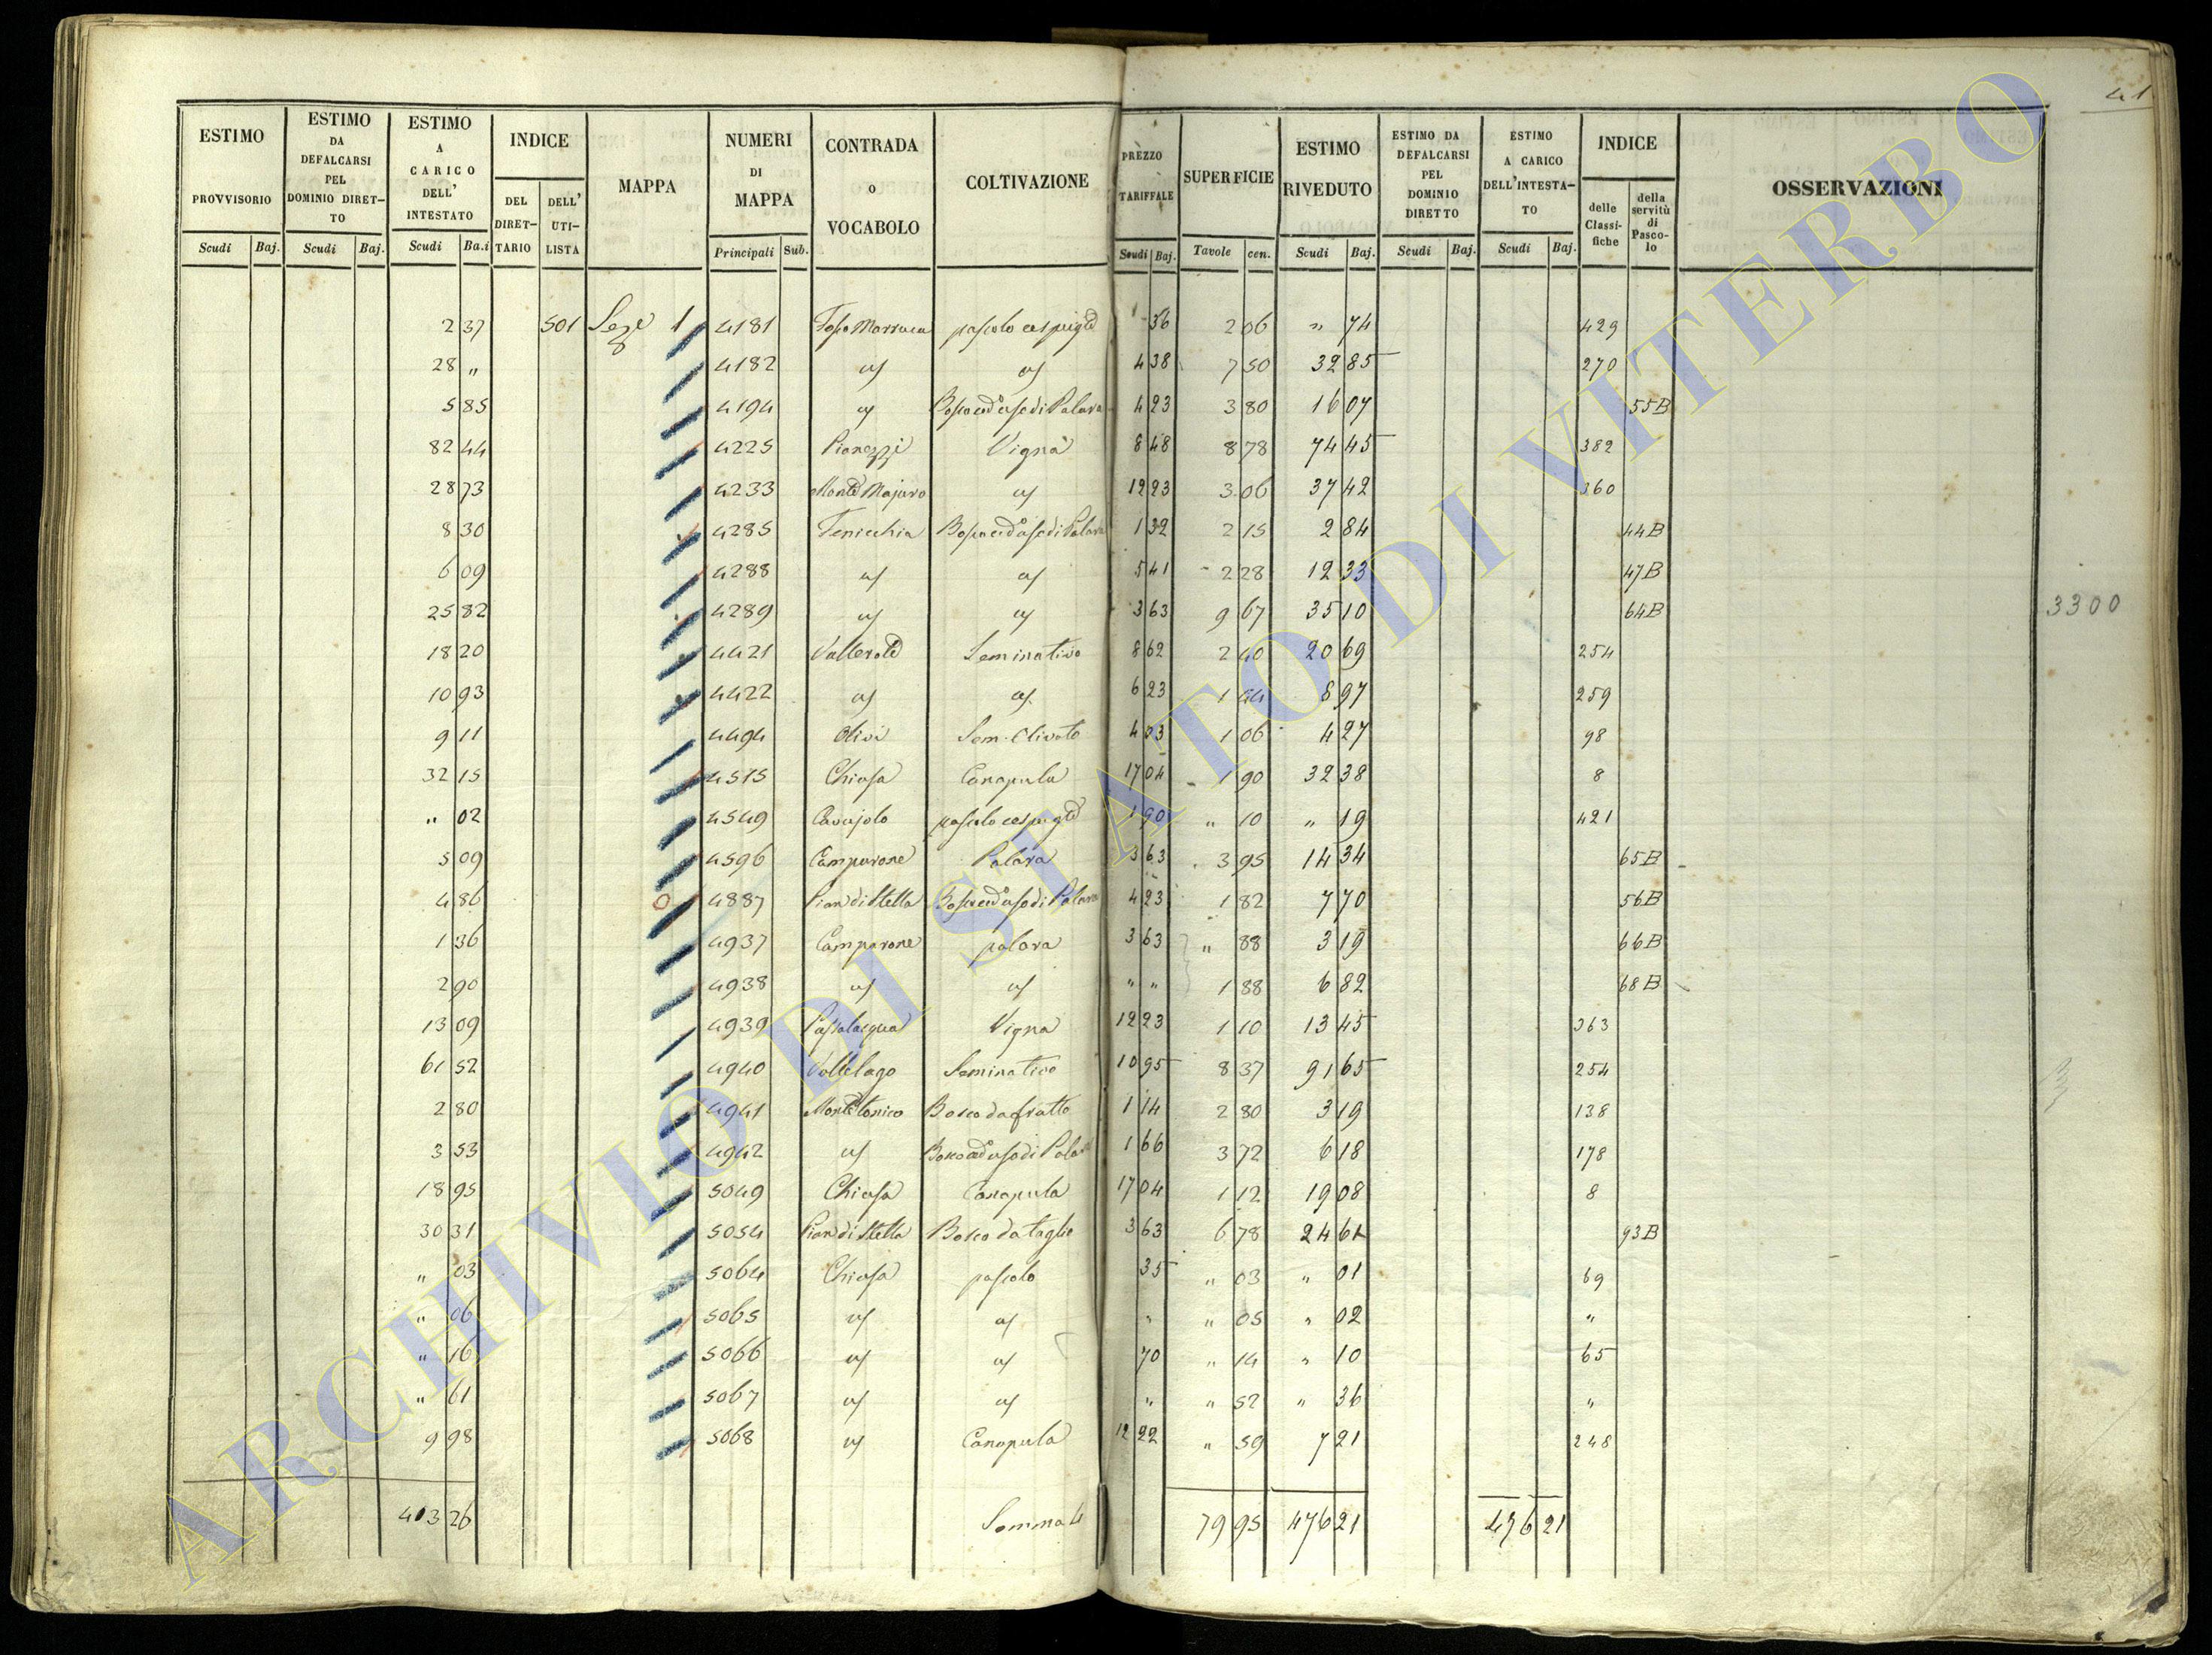 41
ESTIMO PROVVISORIO | ESTIMO DA DEFALCARSI PEL DOMINIO DIRET-TO | ESTIMO A CARICO DELL' INTESTATO | INDICE | MAPPA | NUMERI DI MAPPA | CONTRADA O VOCABOLO | COLTIVAZIONE | PREZZO TARIFFALE | SUPERFICIE | ESTIMO RIVEDUTO | ESTIMO DA DEFALCARSI PEL DOMINIO DIRETTO | ESTIMO A CARICO DELL'INTESTA-TO | INDICE | OSSERVAZIONI
Scudi | Baj. | Scudi | Baj. | Scudi | Ba.i | DEL DIRET-TARIO | DELL' UTI-LISTA | Principali | Sub. | Scudi | Baj. | Tavole | cen. | Scudi | Baj. | Scudi | Baj. | Scudi | Baj. | delle Classi-fiche | della servitù di Pasco-lo
2 37 | 501 | Sez.e 1 | 4181 | Fosso Marruca | pascolo cespugto | 36 | 2 06 | " 74 | 429
28 " | 4182 | " | " | 4 38 | 7 50 | 32 85 | 270
5 85 | 4194 | " | Bosco ced° uso di Palara | 4 23 | 3 80 | 16 07 | 55B
82 44 | 4225 | Pianezzi | Vigna | 8 48 | 8 78 | 74 45 | 382
28 73 | 4233 | Monte Majuro | " | 12 23 | 3 06 | 37 42 | 360
8 30 | 4285 | Fenicchia | Bosco ced° uso di Palara | 1 32 | 2 15 | 2 84 | 44B
6 09 | 4288 | " | " | 5 41 | 2 28 | 12 33 | 47B
25 82 | 4289 | " | " | 3 63 | 9 67 | 35 10 | 64B
3300
18 20 | 4421 | Vallerate | Seminativo | 8 62 | 2 40 | 20 69 | 254
10 93 | 4422 | " | " | 6 23 | 1 44 | 8 97 | 259
9 11 | 4494 | Olivi | Sem. Olivato | 4 03 | 1 06 | 4 27 | 98
32 15 | 4515 | Chiusa | Canapula | 17 04 | 1 90 | 32 38 | 8
" 02 | 4549 | Cavajolo | pascolo cespugto | 1 90 | " 10 | " 19 | 421
5 09 | 4596 | Camparone | Palara | 3 63 | 3 95 | 14 34 | 65B
4 86 | 4887 | Pian di Stella | Bosco ced° uso di Palara | 4 23 | 1 82 | 7 70 | 56B
1 36 | 4937 | Camparone | palara | 3 63 | " 88 | 3 19 | 66B
2 90 | 4938 | " | " | " " | 1 88 | 6 82 | 68B
13 09 | 4939 | Passalacqua | Vigna | 12 23 | 1 10 | 13 45 | 363
61 52 | 4940 | Vallelago | Seminativo | 10 95 | 8 37 | 91 65 | 254
2 80 | 4941 | Montetonico | Bosco da fratte | 1 14 | 2 80 | 3 19 | 138
3 53 | 4942 | " | Bosco ced° uso di Palara | 1 66 | 3 72 | 6 18 | 178
18 95 | 5049 | Chiusa | Canapula | 17 04 | 1 12 | 19 08 | 8
30 31 | 5054 | Pian di Stella | Bosco da taglio | 3 63 | 6 78 | 24 61 | 93B
" 03 | 5064 | Chiusa | pascolo | 35 | " 03 | " 01 | 69
" 06 | 5065 | " | " | " | " 05 | " 02 | "
" 16 | 5066 | " | " | 70 | " 14 | " 10 | 65
" 61 | 5067 | " | " | " | " 52 | " 36 | "
9 98 | 5068 | " | Canapula | 12 22 | " 59 | 7 21 | 248
413 26 | Somma | 79 95 | 476 21 | 476 21
ARCHIVIO DI STATO DI VITERBO